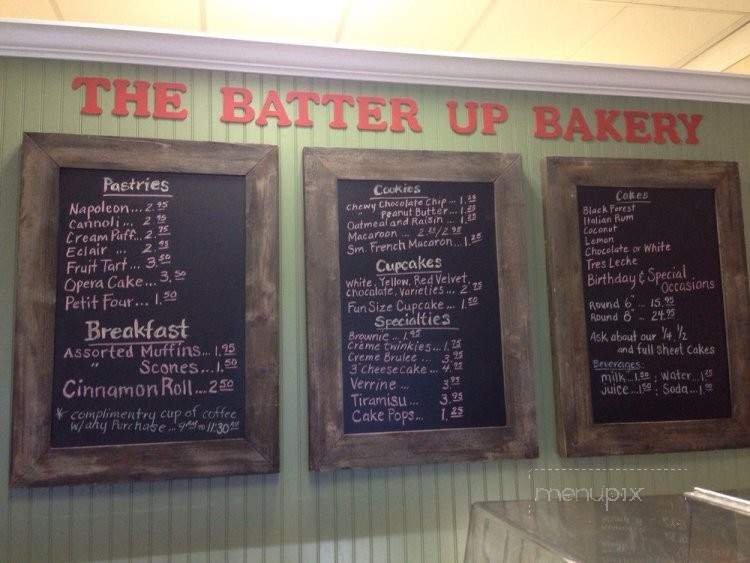 THE BATTER UP BAKERY
Pastries
Napoleon... 2.95
Cannoli... 2.95
Cream Puff... 2.95
Eclair ... 2.95
Fruit Tart... 3.50
Opera Cake... 3.50
Petit Four... 1.50
Breakfast
Assorted Muffins... 1.95
" Scones... 1.50
Cinnamon Roll... 2.50
* complimentry cup of coffee
w/any Purchase ... 9AM TO 11:30 AM
Cookies
Chewy Chocolate Chip ... 1.25
" Peanut Butter... 1.25
Oatmeal and Raisin ... 1.25
Macaroon ... 2.25/2.95
Sm. French Macaron... 1.25
Cupcakes
White, Yellow, Red Velvet,
Chocolate, Varieties ... 2.75
Fun Size Cupcake ... 1.50
Specialties
Brownie ... 1.95
Creme Twinkies... 1.75
Creme Brulee ... 3.95
3" cheesecake ... 4.95
Verrine ... 3.95
Tiramisu ... 3.95
Cake Pops... 1.25
Cakes
Black Forest
Italian Rum
Coconut
Lemon
Chocolate or White
Tres Leche
Birthday & Special
Occasions
Round 6" ... 15.95
Round 8" ... 24.95
Ask about our 1/4, 1/2
and full Sheet Cakes
Beverages:
milk...1.50 : Water...1.25
Juice...1.50 : Soda...1.00
menupix